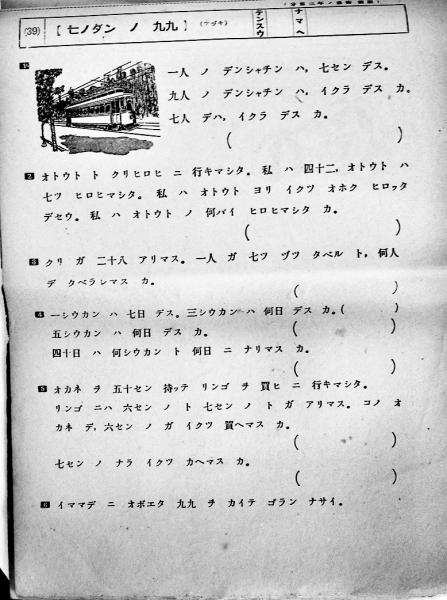 (39) 【 七ノダン ノ 九九 】 (ウダキ)
テンスウ
ナマヘ
1
一人 ノ デンシャチン ハ, 七セン デス。
九人 ノ デンシャチン ハ, イクラ デス カ。
七人 デハ, イクラ デス カ。
( )
2 オトウト ト クリヒロヒ ニ 行キマシタ。 私 ハ 四十二, オトウト ハ
七ツ ヒロヒマシタ。 私 ハ オトウト ヨリ イクツ オホク ヒロッタ
デセウ。 私 ハ オトウト ノ 何バイ ヒロヒマシタ カ。
( )
3 クリ ガ 二十八 アリマス。 一人 ガ 七ツ ヅツ タベル ト, 何人
デ タベラレマス カ。
( )
4 一シウカン ハ 七日 デス。 三シウカン ハ 何日 デス カ。( )
五シウカン ハ 何日 デス カ。 ( )
四十日 ハ 何シウカン ト 何日 ニ ナリマス カ。
( )
5 オカネ ヲ 五十セン 持ッテ リンゴ ヲ 買ヒ ニ 行キマシタ。
リンゴ ニハ 六セン ノ ト 七セン ノ ト ガ アリマス。 コノ オ
カネ デ, 六セン ノ ガ イクツ 買ヘマス カ。
( )
七セン ノ ナラ イクツ カヘマス カ。
( )
6 イママデ ニ オボエタ 九九 ヲ カイテ ゴラン ナサイ。